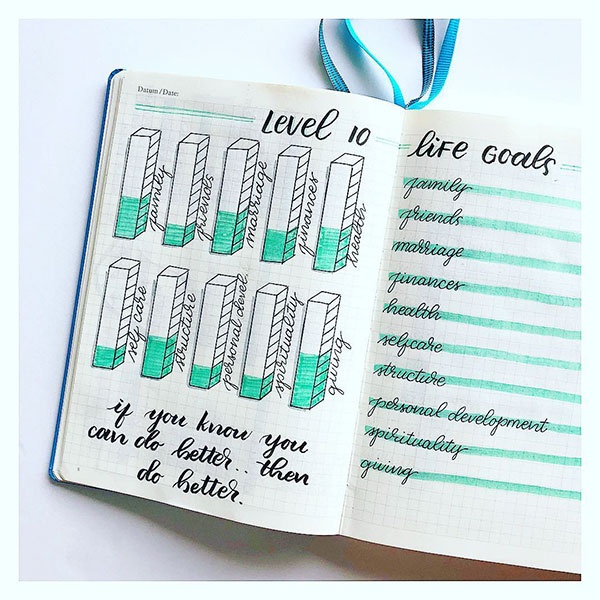 Datum/Date:
Level 10
family
friends
marriage
finances
health
self care
structure
personal devel.
spirituality
giving
if you know you
can do better.. then
do better.
life Goals
family
friends
marriage
finances
health
selfcare
structure
personal development
spirituality
giving